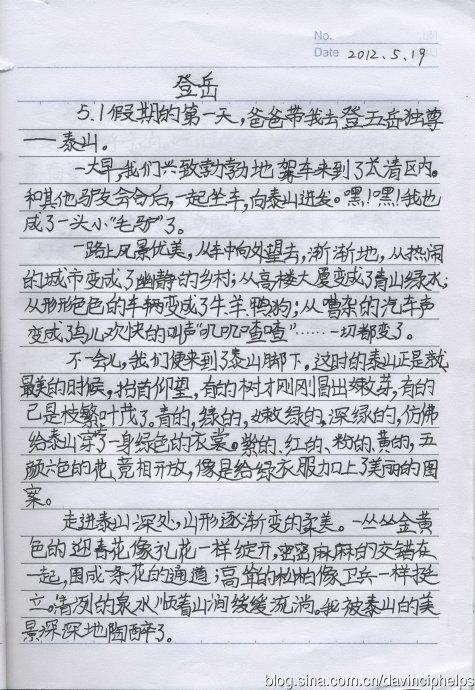 No.
Date 2012.5.19
登岳
5.1假期的第一天,爸爸带我去登五岳独尊
——泰山。
一大早,我们兴致勃勃地驾车来到了长清区内。
和其他驴友会合后,一起坐车,向泰山进发。嘿!嘿!我也
成了一头小“毛驴”了。
一路上风景优美,从车中向外望去,渐渐地,从热闹
的城市变成了幽静的乡村;从高楼大厦变成了青山绿水;
从形形色色的车辆变成了牛、羊、鸭狗;从嘈杂的汽车声
变成了鸟儿欢快的叫声“叽叽喳喳”……一切都变了。
不一会儿,我们便来到了泰山脚下。这时的泰山正是
最美的时候,抬首仰望,有的树才刚刚冒出嫩芽,有的
已是枝繁叶茂了。青的,绿的,嫩绿的,深绿的,仿佛
给泰山穿了一身绿色的衣裳。紫的、红的、粉的、黄的,五
颜六色的花,竞相开放,像是给绿衣服加上了美丽的图
案。
走进泰山深处,山形逐渐变的柔美。一丛丛金黄
色的迎春花像礼花一样绽开,密密麻麻的交错在
一起,围成一条花的通道;高耸的松柏像卫兵一样挺
立。清冽的泉水顺着山涧缓缓流淌。我被泰山的美
景深深地陶醉了。
blog.sina.com.cn/davinciphelps